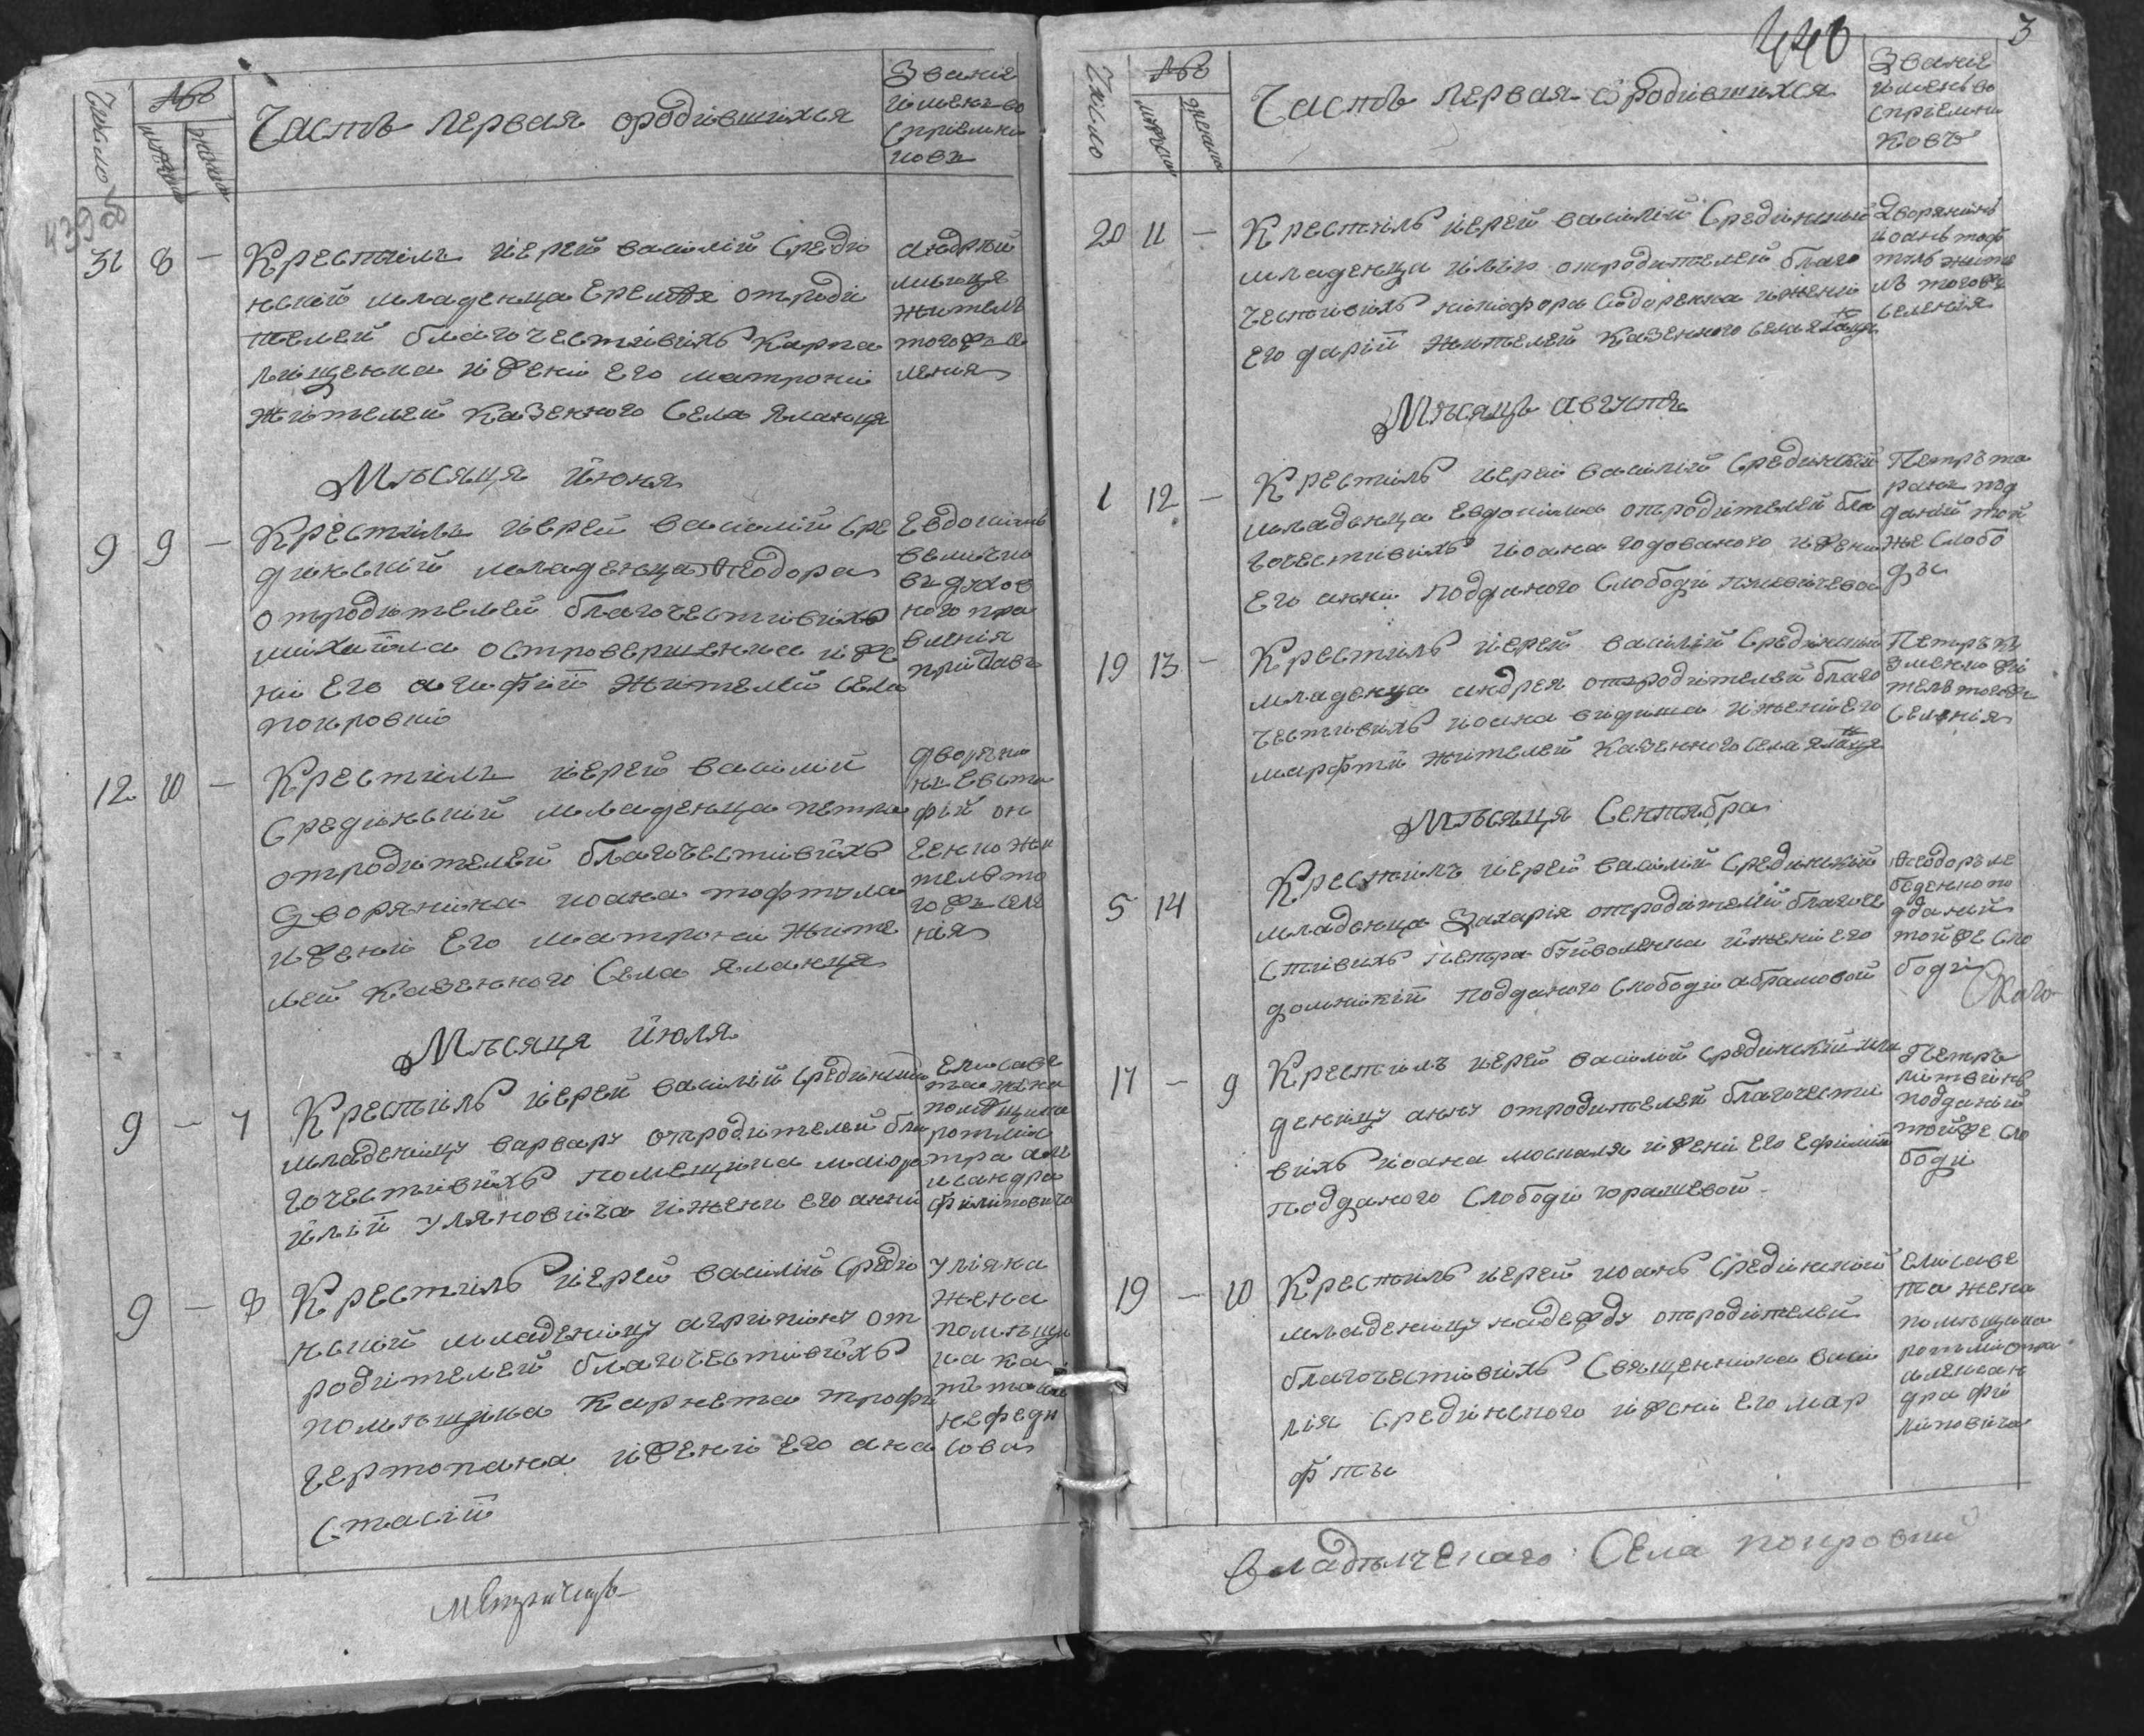 Число
№
мужск
женска
Часть первая ородiвшихся
Званiе
iименъ во
спрiемни
ковъ
31 8 — Крестилъ иерей василiй Среди
нскiй младенца Еремѣя отроди
телей благочестiвiхъ Карпа
лищенка и жени Его матрони
жителей Казенного Села Яланця
андрiй
жителъ
тогожъ се
ленiя
Мѣсяця июня
9 9 — Крестилъ иерей василiй Сре
динскiй младенца Ѳеодора
отродителей благочестивiхъ
михаiла островершенка и же
нi Его агафiй жителей Села
покровкi
Евдокимъ
величко
въ духов
ного пра
вленiя
приставъ
12 10 — Крестилъ иерей василiй
Срединскiй младенца петра
отродителей благочестiвiхъ
Дворянiна иоана тофтула
и женi Его матрони жите
лей Казенного Села Яланця
дворяни
нъ Евста
фiй он
еенко жи
тель то
гожъ селе
нiя
Мѣсяця июля
9 — 7 Крестилъ иерей василiй Срединскiй
младеницу варвару отродителей бла
гочестивiхъ помещика маiора
iлiй уляновiча iжени его анни
Елисаве
та жена
помѣщика
ротмис
тра але
ксандра
филиповича
9 — 8 Крестилъ иерей василiй Среди
нскiй младеницу агрипину от
родителей благочестiвiхъ
помѣщика Карнета трофи
чертопана и женi Его ана
стасiй
Улiяна
жена
помѣщи
ка ка
питана
нефеди
сова
440
3
Число
№
мужск
женска
Часть первая ородiвшихся
Званiе
именъ во
спрiемни
ковъ
20 11 — Крестилъ иерей василiй Срединскiй
младенца iлiю отродителей благо
честiвiхъ никифора Сидоренка iжени
Его дарiй жителей Казенного села Яланця
Дворянинъ
иоанъ тоф
тулъ жите
лъ тогожъ
селенiя
Мѣсяцъ августа
1 12 — Крестилъ иерей василiй Срединскiй
младенца Евдокима отродителей бла
гочестiвiхъ иоана годованого и жени
Его анни подданого Слободи
Петръ та
ранъ под
данiй той
же слобо
ди
19 13 — Крестилъ иерей василiй Срединскiй
младенца андрея отродителей благо
честивiхъ иоана iженi Его
марфiй жителей Казенного Села Яланця
Петръ ку
зменко жи
тель тогожъ
Селенiя
Мѣсяця Сентября
5 14 Крестилъ иерей василiй Срединскiй
младенца Захарiя отродителей благоче
стивихъ петра iженi его
домникiй подданого Слободи абрамовой
Ѳеодоръ ле
беденко по
дданiй
той же сло
боди
17 — 9 Крестилъ иерей василiй Срединскiй мла
деницу анну отродителей благочести
вихъ иоана москаля и женi его Ефимiй
подданого Слободи юрашевой
Петръ
литвинъ
подданiй
той же сло
боди
19 — 10 Крестилъ иерей иоанъ Срединскiй
младеницу надежду отродителей
благочестивiхъ Священника васи
лiя Срединского и женi Его мар
фи
Елисаве
та жена
помѣщика
ротмистра
алексан
дра фи
липовича
Владѣлческаго Села покровки